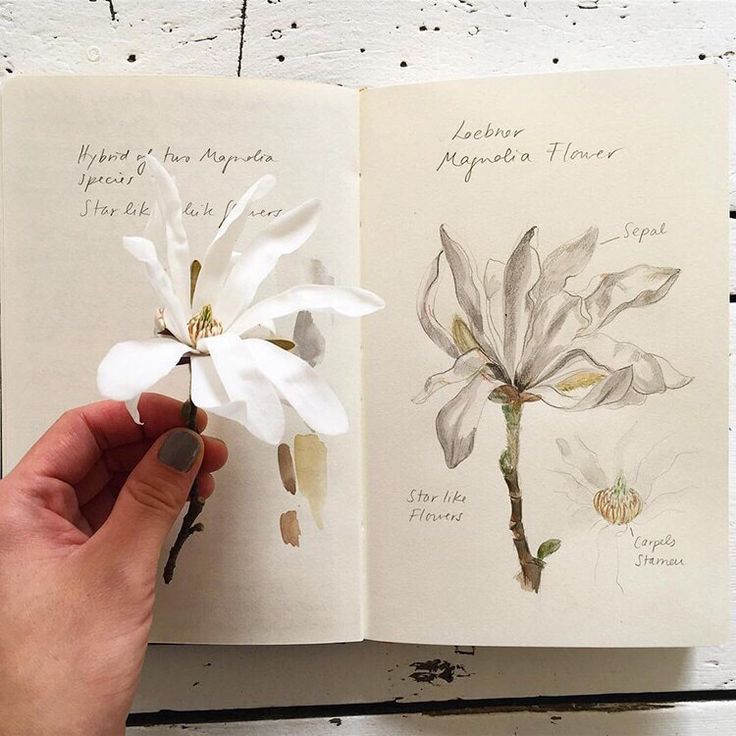 Hybrid of two Magnolia
species
Star like flowers
Loebner
Magnolia Flower
Sepal
Star like
Flowers
Carpels
Stamen